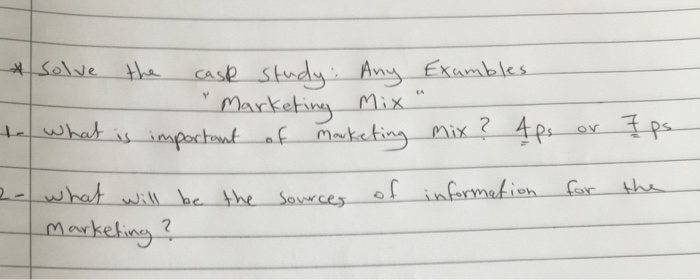 * Solve the case study: Any Exambles
"Marketing Mix"
1- what is important of marketing mix? 4ps or 7ps
2- what will be the sources of information for the
marketing?